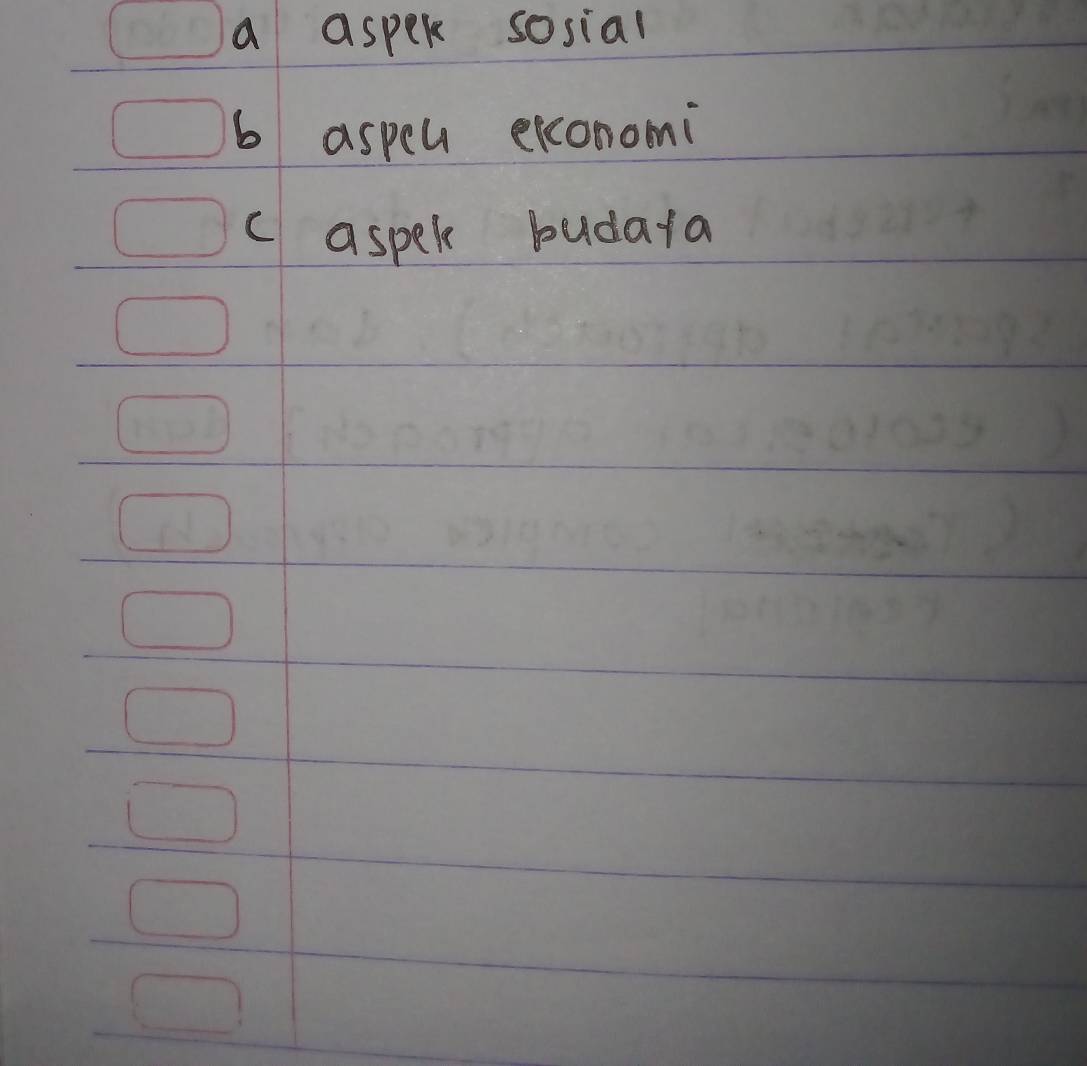 a aspek sosial
b aspek ekonomi
c aspek budaya